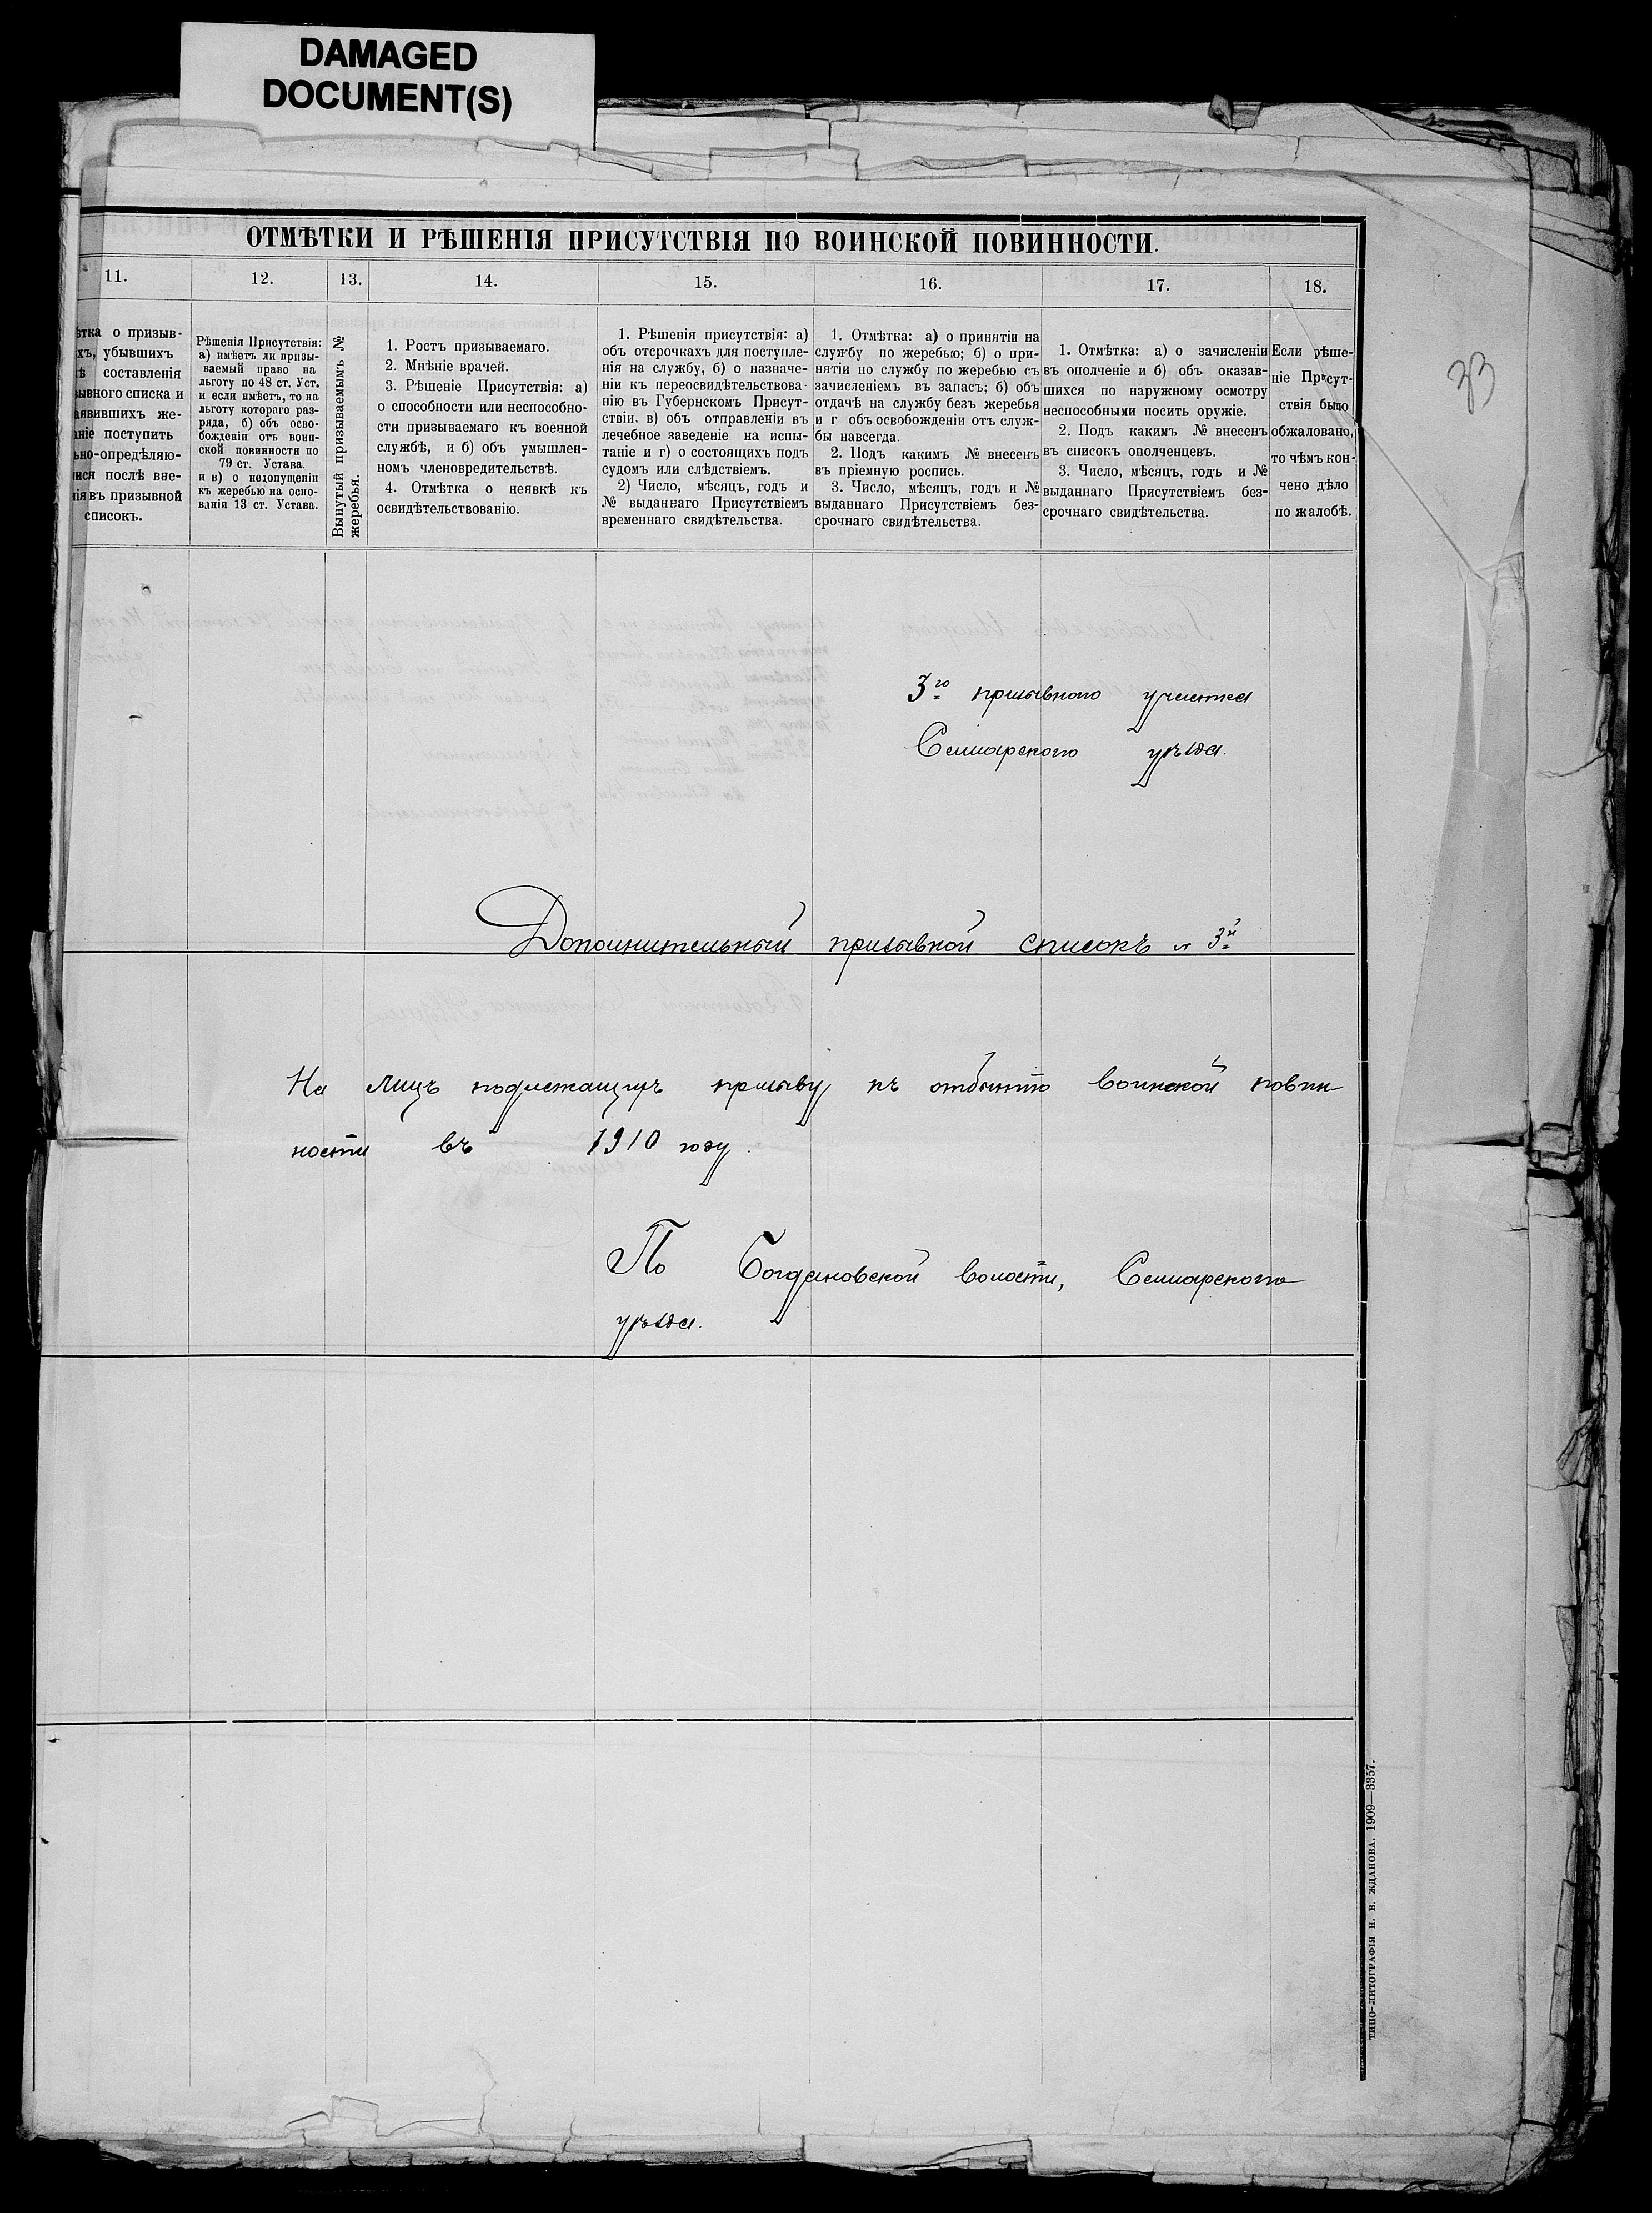 DAMAGED
DOCUMENT(S)
ОТМѢТКИ И РѢШЕНІЯ ПРИСУТСТВІЯ ПО ВОИНСКОЙ ПОВИННОСТИ.
11.
12.
13.
14.
15.
16.
17.
18.
ѣтка о призыв-
хъ, убывшихъ
ѣ составленія
ывного списка и
аявившихъ же-
аніе поступить
ьно-опредѣляю-
мися послѣ вне-
нія въ призывной
списокъ.
Рѣшенія Присутствія:
а) имѣетъ ли призы-
ваемый право на
льготу по 48 ст. Уст.
и если имѣетъ, то на
льготу котораго раз-
ряда, б) объ осво-
божденіи отъ воин-
ской повинности по
79 ст. Устава.
и в) о недопущеніи
къ жеребью на осно-
ваніи 13 ст. Устава.
Вынутый призываемымъ №
жеребья.
1. Ростъ призываемаго.
2. Мнѣніе врачей.
3. Рѣшеніе Присутствія: а)
о способности или неспособно-
сти призываемаго къ военной
службѣ, и б) объ умышлен-
номъ членовредительствѣ.
4. Отмѣтка о неявкѣ къ
освидѣтельствованію.
1. Рѣшенія присутствія: а)
объ отсрочкахъ для поступле-
нія на службу, б) о назначе-
ніи къ переосвидѣтельствова-
нію въ Губернскомъ Присут-
ствіи, в) объ отправленіи въ
лечебное заведеніе на испы-
таніе и г) о состоящихъ подъ
судомъ или слѣдствіемъ.
2) Число, мѣсяцъ, годъ и
№ выданнаго Присутствіемъ
временнаго свидѣтельства.
1. Отмѣтка: а) о принятіи на
службу по жеребью; б) о при-
нятіи но службу по жеребью съ
зачисленіемъ въ запасъ; б) объ
отдачѣ на службу безъ жеребья
и г объ освобожденіи отъ служ-
бы навсегда.
2. Подъ какимъ № внесенъ
въ пріемную роспись.
3. Число, мѣсяцъ, годъ и №
выданнаго Присутствіемъ без-
срочнаго свидѣтельства.
1. Отмѣтка: а) о зачисленіи
въ ополченіе и б) объ оказав-
шихся по наружному осмотру
неспособными носить оружіе.
2. Подъ какимъ № внесенъ
въ списокъ ополченцевъ.
3. Число, мѣсяцъ, годъ и №
выданнаго Присутствіемъ без-
срочнаго свидѣтельства.
Если рѣше-
ніе Присут-
ствія было
обжаловано,
то чѣмъ кон-
чено дѣло
по жалобѣ.
33
3го призывного участка
Самарского уѣзда.
Дополнительный призывной списокъ № 3й
На лицъ подлежащихъ призыву къ отбытію воинской повин
ности въ 1910 году.
По Богдановской волости, Самарского
уѣзда.
ТИПО-ЛИТОГРАФІЯ Н. В. ЖДАНОВА. 1909—3357.